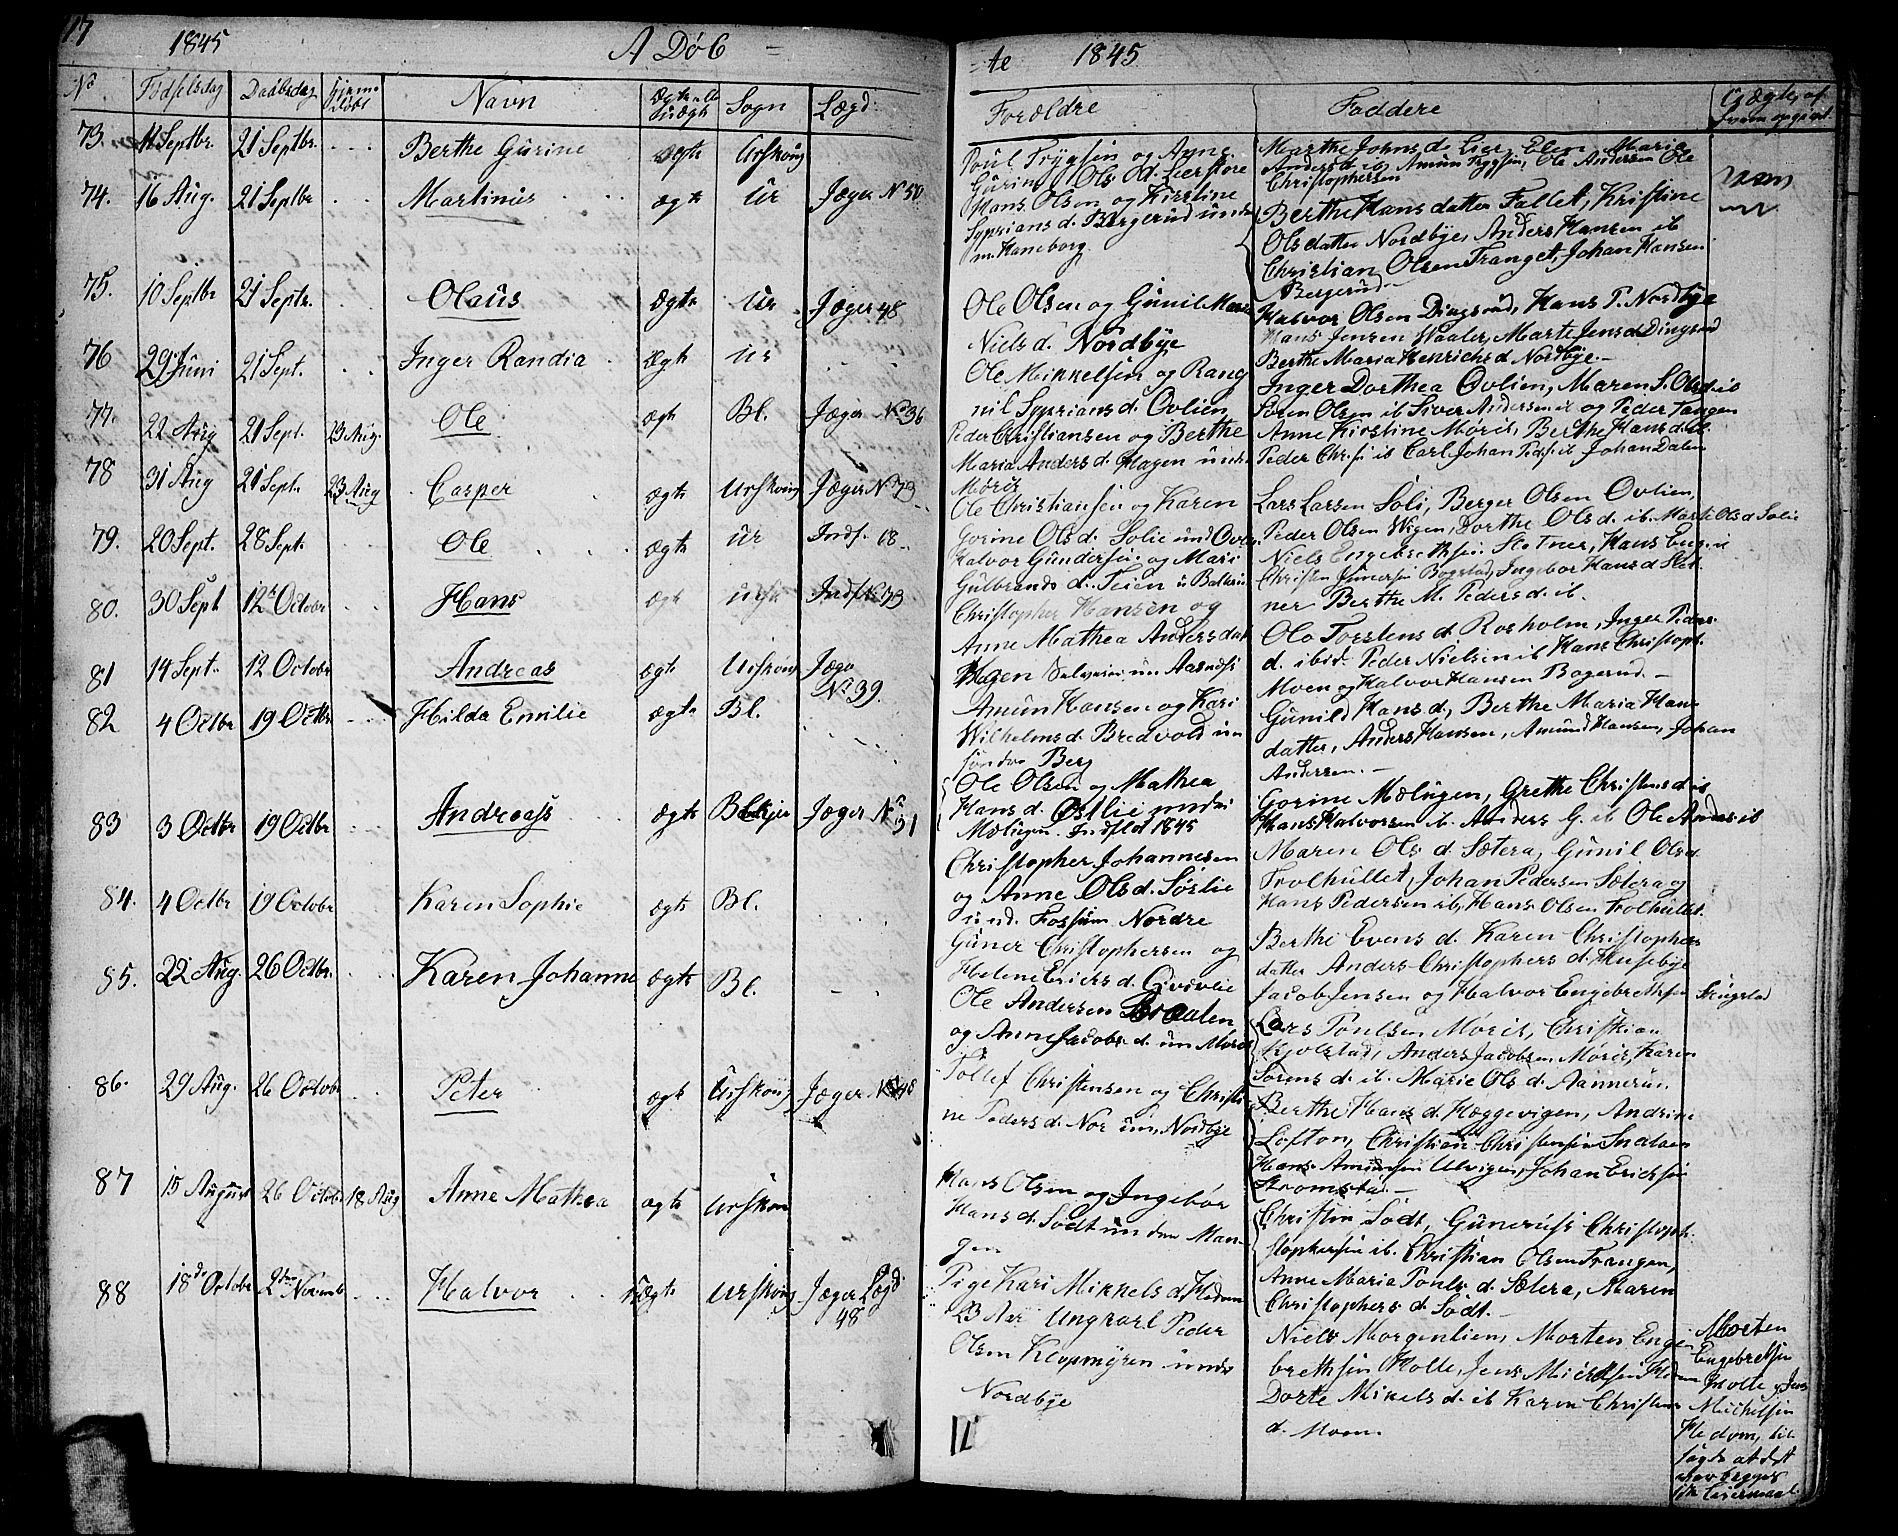 77 1845 A Døb = te 1845
No Fødselsdag Daabsdag Hjemme Døbt Navn Ægte eller Uægte Sogn Lægd
Forældre Faddere
73. 11 Septbr. 21 Septbr. Berthe Gurine ægte Urskoug
Poul Trygsen og Anne
Gurine Ols d. Lierstore
Marthe Johns d. Lier, Elen Marie
Anders d. ib Amun Trygsen, Ole Andersen Ole
Christophersen
74. 16 Aug. 21 Septbr Martinus ægte Ur Jæger No 50
Hans Olsen og Kirstine
Syprians d. Bergerud under
m Haneborg
Berthe Hansdatter Fallet, Kristine
Olsdatter Nordbye, Anders Hansen ib
Christian Olsen Tranget, Johan Hansen
Bergerud
75. 10 Septbr 21 Septr. Olaus Ægte Ur Jæger 48
Ole Olsen og Gunil Marie
Niels d. Nordbye
Halvor Olsen Dingsrud, Hans P. Nordbye
Hans Jensen Waaler, Marte Jens d Dingsrud
Berthe Maria Henrichs d Nordbye.
76 29 Juni 21 Sept. Inger Randia ægte Ur
Ole Mikkelsen og Rang
nil Syprians d. Ovlien
Inger Dorthea Ovlien, Maren S. Ols d. ib
Søren Olsen ib Siver Andersen ib og Peder Tangen
77. 22 Aug 21 Sept. 23 Aug. Ole ægte Bl. Jæger No 36
Peder Christiansen og Berthe
Maria Anders d. Hagen under
Moris
Anne Kirstine Moris, Berthe Hans d. ib
Peder Chrs. ib Carl Johan Peds. ib Johan Dalen
78 31 Aug 21 Sept. 23 Aug Casper ægte Urskoug Jæger No 73
Ole Christiansen og Karen
Gorine Ols d. Solie und Ovlie
Lars Larsen Soli, Berger Olsen Ovlien,
Peder Olsen Wigen, Dorthe Ols d. ib. Marte Ols d Solie
79. 20 Sept. 28 Sept. Ole ægte Ur Indf. 18
Halvor Gundersen og Mari
Gulbrands d. Teien
Niels Engebrethsen Slotner, Hans Eng. ib
Christen Gunersen Bogstad, Ingebor Hans d Slot
ner Berthe M. Peders d. ib.
80. 30 Sept 12te Octobr Hans ægte Ursk
Christopher Hansen og
Anne Mathea Andersdat
Hagen
Ole Torstens d. Rosholm, Inger Peders
d. ibid Peder Nielsen ib Hans Christoph.
Moen og Halvor Hansen Bogerud
81 14 Sept. 12 Octobr Andreas ægte Urskoug Jæge
No 39.
Amun Hansen og Kari
Wilhelms d. Bredvold un
søndre Berg
Gunild Hans d, Berthe Maria Hans
datter, Anders Hansen, Amund Hansen, Johan
Andersen.
82 4 Octbr 19 Octbr Hilda Emilie ægte Bl.
Ole Olsen og Mathea
Hans d. Østlie under
Mælugen. 1845
Gorine Mælugen, Grethe Christens d ib
Hans Halvorsen ib. Anders G. ib Ole Anders ib
83 3 Octbr 19 Octbr Andreas ægte Jæger No
31
Christopher Johannesen
og Anne Ols d. Sørlie
und. Fossum Nordre
Maren Ols d. Sætera, Gunil Ols d.
Trolhullet, Johan Pedersen Sætera og
Hans Pedersen ib, Hans Olsen Trolhullet.
84. 4 Octbr 19 Octobr Karen Sophie ægte Bl.
Guner Christophersen og
Helene Ericks d.
Berthe Evens d. Karen Christophers
datter Anders Christophers d. Husebye
Jacob Jensen og Halvor Engebrethsen
85. 22 Aug. 26 Octbr. Karen Johanne ægte Bl.
Ole Andersen Braaten
og Anne Jacobs d. un Moris
Lars Poulsen Moris, Christian
Kjolstad, Anders Jacobsen Moris, Karen
Sørens d. ib. Marie Ols d. Aannerud
86. 29 Aug. 26 Octobr Peter ægte Urskoug Jæger No 48
Tollef Christensen og Christi
ne Peders d. Nor un. Nordbye
Berthe Hans d. Hæggevigen, Andrine
Lofton, Christian Christensen
Hans Amundsen Ulvigen, Johan Ericksen
Kromsta
87 15 August 26 Octobr 18 Aug Anne Mathea ægte Urskou
Hans Olsen og Ingebor
Hans d. Sødt under Man
gen
Christin Sødt, Guneruss Christoph.
stophersen ib. Christian Olsen Trangen,
Anne Maria Pouls d. Sætera, Maren
Christophers d. Sødt.
88 18de Octobr 2den Novemb Halvor Uægte Urskoug Jæger Lægd
48
Pige Kari Mikkels d. Hedom
23 Aar Ungkarl Peder
Olsen Klopmyren under
Nordbye
Niels Morgenlien, Morten Enge
brethsen Holte, Jens Michelsen Hedom
Dorte Mikels d. ib Karen Christens
d. Moen.
Morten
Engebretsen
Holte og Jens
Michelsen
Hedom,